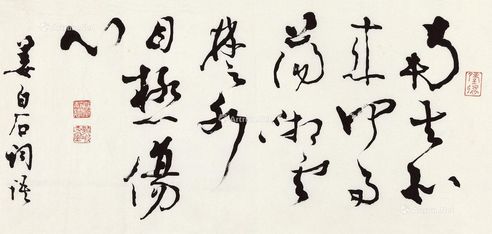 南去北
來何事
蕩湘雲
楚水
目極傷
心
姜白石詞語